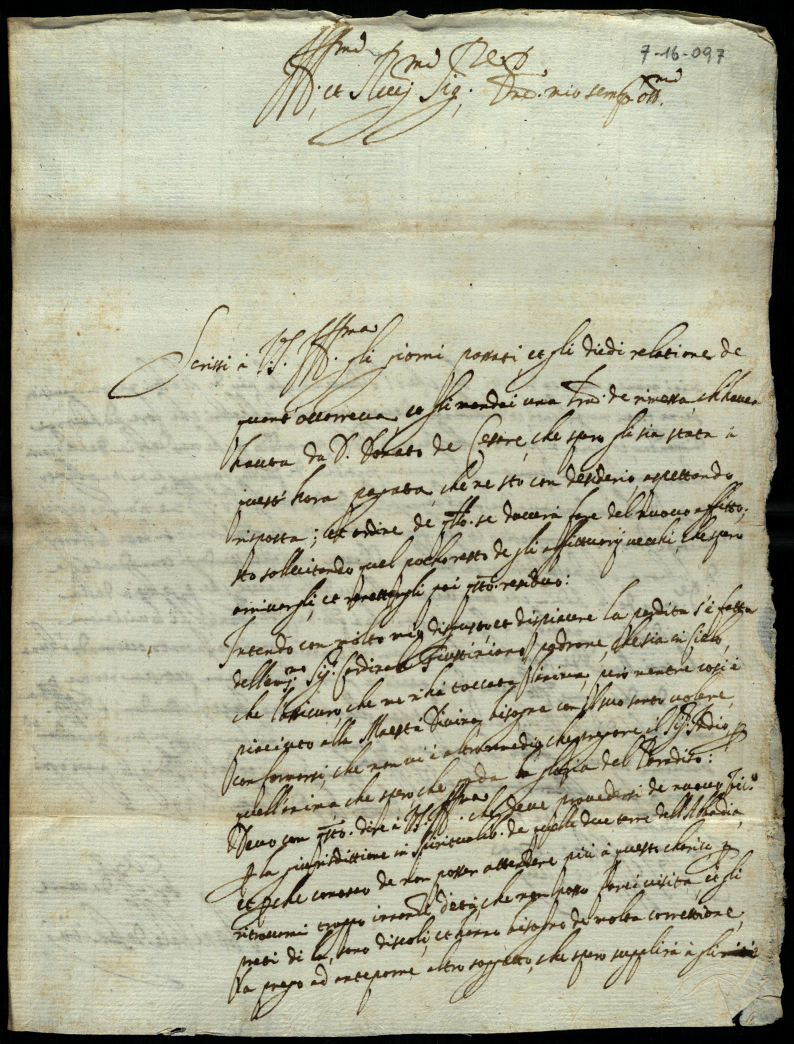 7-16-097
Ill.mo et R.mo Sig.r P.ron
mio semp. oss.mo
Scrissi à V.S. Ill.ma gli giorni passati et gli diedi relatione de
quant'occorreva, et gli mandai una de rimessa, ch'havea
havuta da D. Donato de Cesare, che spero gli sia stata à
quest'hora pagata, che ne stò con desiderio aspettando
risposta; et ordine de q.llo se doverà fare del nuovo affitto;
stò sollecitando quel pocho resto de gli affittuarij vecchi, che spero
et poi q.sto residuo:
Intendo con molto mio disgusto, et dispiacere la perdita s'è fatta
dell'em.mo Sig.r Cardinale Giustiniano padrone, che sia in Cielo,
che l'assicuro, che me n'hà toccata l'anima, però mentre così è
piaciuto alla Maestà Divina, bisogna con il suo santo volere
conformarsi, che non vi è altro remedio, che pregare il Sig.r Iddio p
quell'anima, che spero che goda la gloria del Paradiso:
Devo con q.sto dire à V.S. Ill.ma che deve provedersi de nuovo Vic.o
p la giurisdittione in spirituale de quelle due terre dell'Abbadia,
et p che conosco de non posser attendere più à questo carico, p
ritrovarmi troppo innanzi d'età, che non posso farci visita, et gli
preti di là, sono discoli, et hanno bisogno de molta correttione,
la prego ad anteporne altro soggetto, che spero supplirà à gli